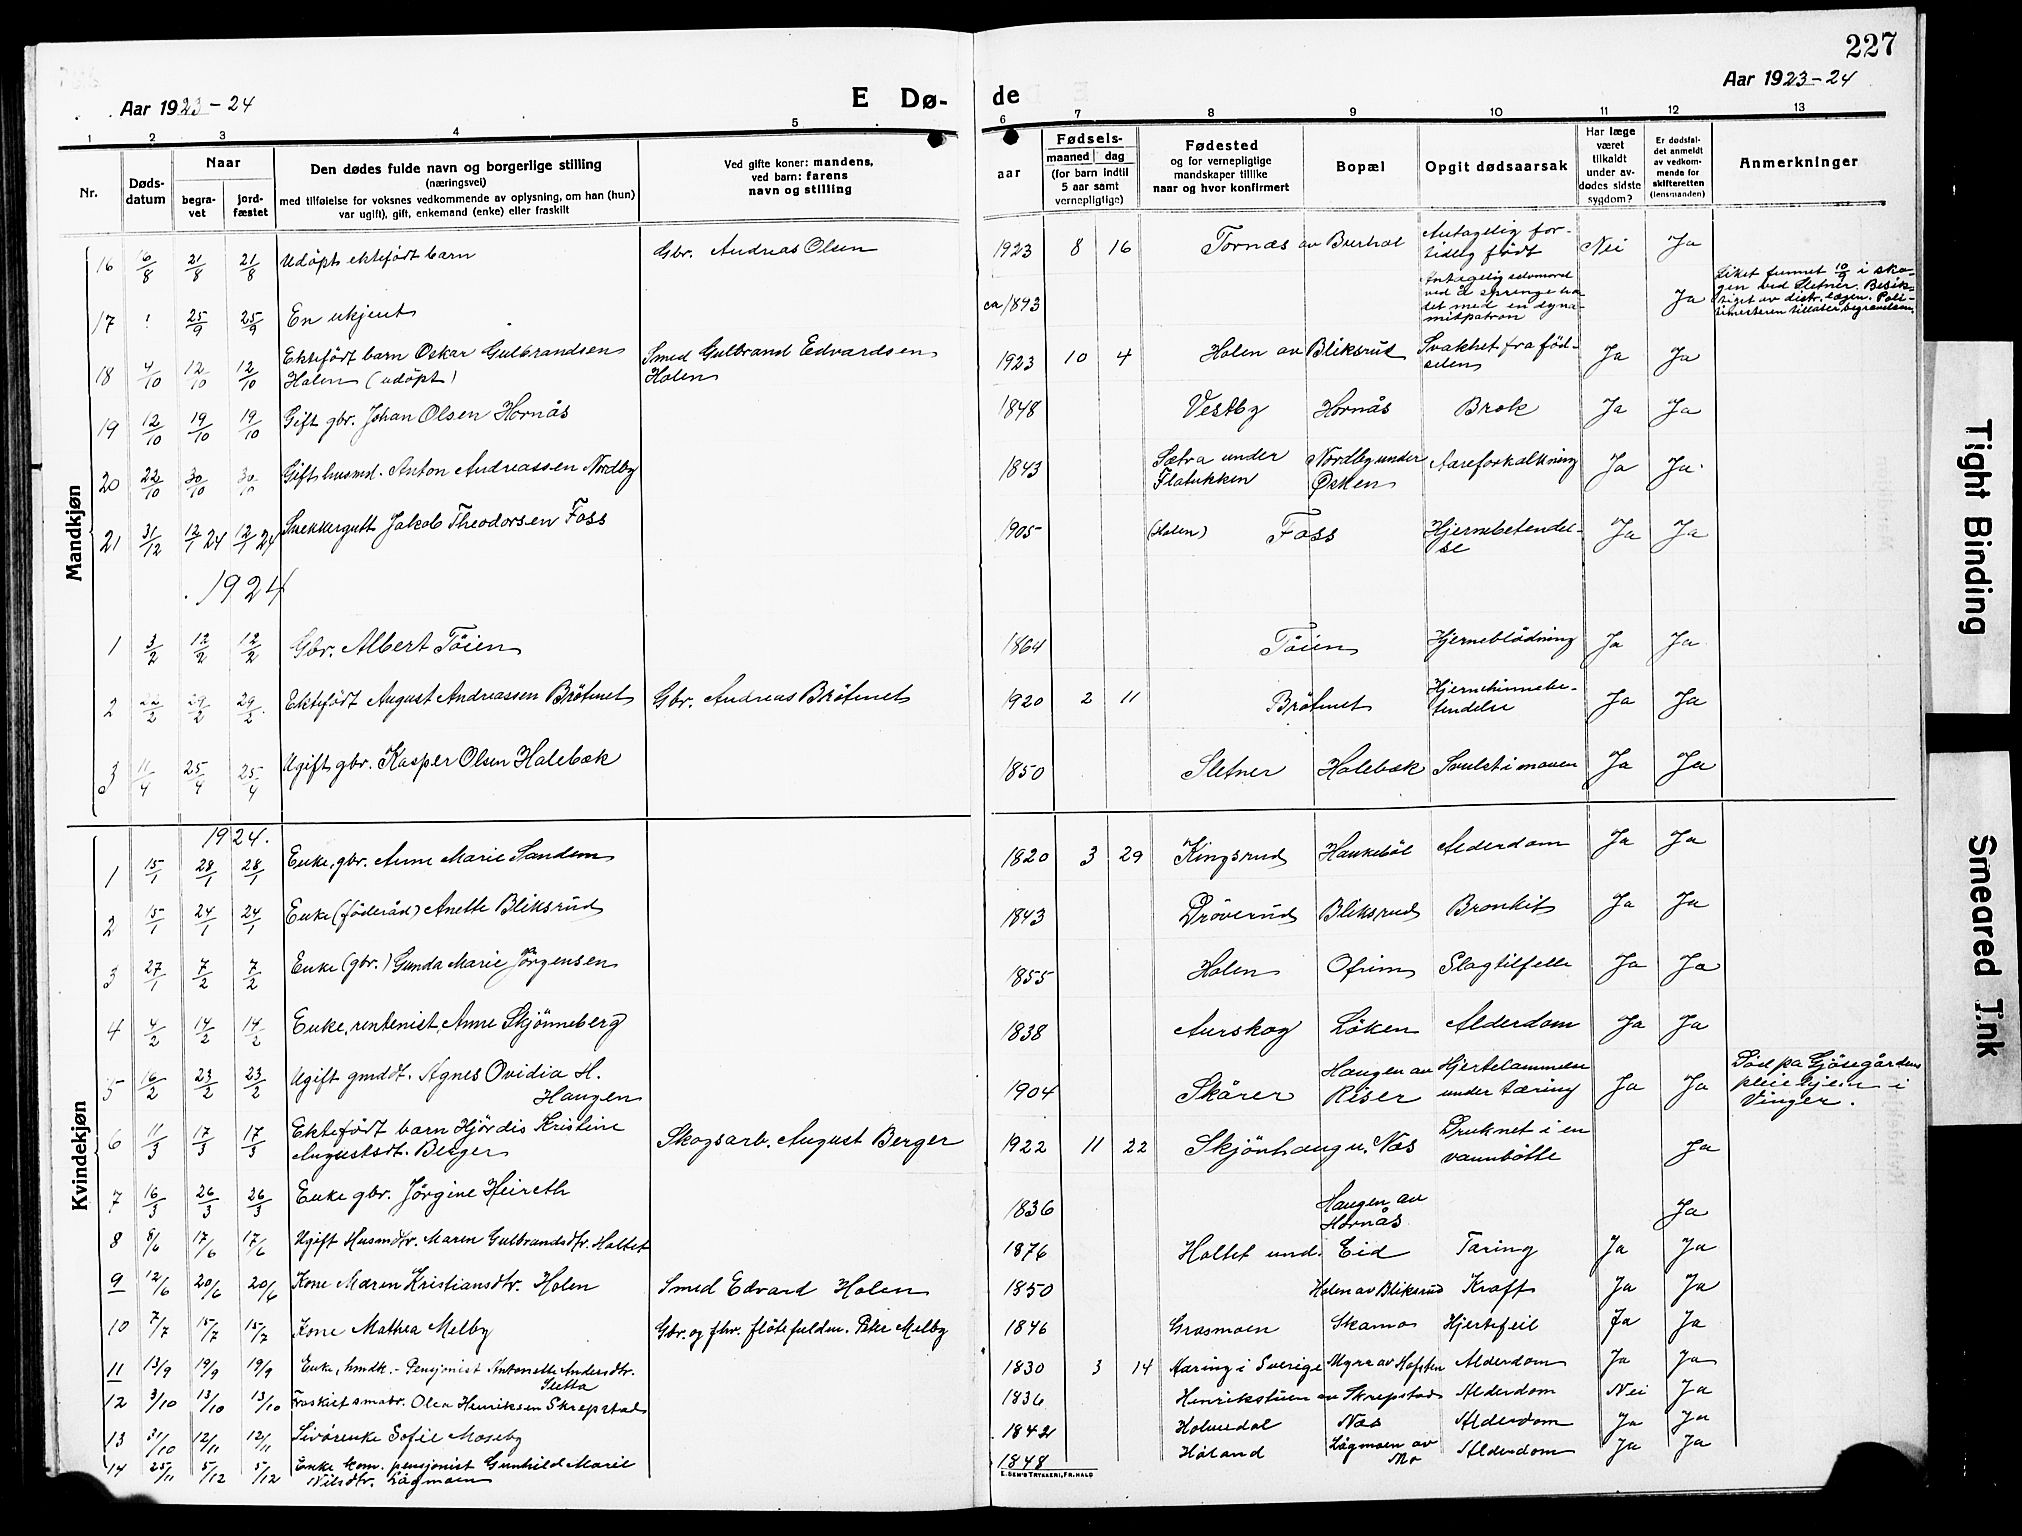 227
Aar 1923-24
E Dø-
de
Aar 1923-24
1 2 3 4 5 6 7 8 9 10 11 12 13
Nr.
Døds-
datum
Naar
begra-
vet
jord-
fæstet
Den dødes fulde navn og borgerlige stilling
(næringsvei)
med tilføielse for voksnes vedkommende av oplysning, om han (hun)
var ugift), gift, enkemand (enke) eller fraskilt
Ved gifte koner: mandens,
ved barn: farens
navn og stilling
aar
Fødsels-
maaned dag
(for barn indtil
5 aar samt
vernepligtige)
Fødested
og for vernepligtige
mandskaper tillike
naar og hvor konfirmert
Bopæl
Opgit dødsaarsak
Har læge
været
tilkaldt
under av-
dødes sidste
sygdom?
Er dødsfal-
det anmeldt
av vedkom-
mende for
skifteretten
(lensmanden)
Anmerkninger
Mandkjøn
16 16/8 21/8 21/8 Udøpt ektefödt barn Gbr. Andreas Olsen 1923 8 16 Tornæs av Burhol Antagelig for-
tidlig födt Nei Ja
17 ! 25/9 25/9 En ukjent ca 1893 Antagelig selvmord
ved å sprenge ho-
det med en dyna-
mitpatron Ja Liket funnet 10/9 i sko-
gen ved Sletner. Besik-
tiget av distr. lægen. Poli-
timesteren tillater begravelsen.
18 4/10 12/10 12/10 Ektefödt barn Oskar Gulbrandsen
Holen (udöpt) Smed Gulbrand Edvardsen
Holen 1923 10 4 Holen av Bliksrud Svakhet fra föd-
selen Ja Ja
19 12/10 19/10 19/10 Gift gbr. Johan Olsen Hornås 1848 Vestby Hornås Brok Ja Ja
20 22/10 30/10 30/10 Gift husmd. Anton Andreassen Nordby 1843 Sætra under
Flatukken Nordby under
Osken Aareforkalkning Ja Ja
21 31/12 12/1 24 12/1 24 Snekkergutt Jakob Theodorsen Foss 1905 (Holen) Foss Hjernebetendel-
se Ja Ja
1924
1 3/2 12/2 12/2 Gbr. Albert Töien 1864 Töien Hjerneblödning Ja Ja
2 22/2 29/2 29/2 Ektefödt August Andreassen Bröternet Gbr. Andreas Bröternet 1920 2 11 Bröternet Hjernehinnebe-
tendelse Ja Ja
3 11/4 25/4 25/4 Ugift gbr. Kasper Olsen Holebæk 1850 Sletner Holebæk Svulst i maven Ja Ja
Kvindekjøn
1924.
1 15/1 28/1 28/1 Enke, gbr. Anne Marie Sandem 1820 3 29 Kingsrud Haukeböl Alderdom Ja Ja
2 15/1 24/1 24/1 Enke (föderåd) Anette Bliksrud 1843 Dröverud Bliksrud Bronkit Ja Ja
3 27/1 7/2 7/2 Enke (gbr.) Gunda Marie Jörgensen 1855 Holen Ofrim Slagtilfelle Ja Ja
4 4/2 14/2 14/2 Enke, rentenist, Anne Skjönneberg 1838 Aurskog Löken Alderdom Ja Ja
5 16/2 23/2 23/2 Ugift gmddt. Agnes Ovidia H.
Haugen 1904 Skårer Haugen av
Riser Hjertelammelse
under tæring Ja Ja Död på Gjösegårdens
pleiehjem i
Vinger.
6 11/3 17/3 17/3 Ektefödt barn Hjördis Kristine
Augustsdt. Berger Skogsarb. August Berger 1922 11 22 Skjönhaug u. Næs Druknet i en
vannbötte Ja
7 16/3 26/3 26/3 Enke gbr. Jörgine Heireth 1836 Haugen av
Hornås Ja
8 8/6 17/6 17/6 Ugift Husmdtr. Maren Gulbrandsdtr. Holtet 1876 Holtet und. Eid Tæring Ja Ja
9 12/6 20/6 20/6 Kone Maren Kristiansdtr. Holen Smed Edvard Holen 1850 Holen av Bliksrud Kræft Ja Ja
10 7/7 15/7 15/7 Kone Mathea Melby Gbr. og fhv. flötefulden. Peter Melby 1846 Grasmoen Skamo Hjertefeil Ja Ja
11 13/9 19/9 19/9 Enke, hmdk. - Pensjonist Antonette Andersdtr.
Sletta 1830 3 14 Kæring i Sverige Myra av Hofsten Alderdom Ja Ja
12 3/10 13/10 13/10 Fraskilt småbr. Olea Henriksen Skrepstad 1836 Henrikstuen av Skrepstad Alderdom Nei Ja
13 31/10 12/11 12/11 Livörenke Sofie Moseby 1842 Holmedal Næs Alderdom Ja Ja
14 25/11 5/12 5/12 Enke kom. pensjonist Gunhild Marie
Nilsdtr. Lågmoen 1848 Höland Lågmoen av
Mo Alderdom Ja Ja
E. SEM'S TRYKKERI, FR.HALD
Tight Binding
Smeared Ink